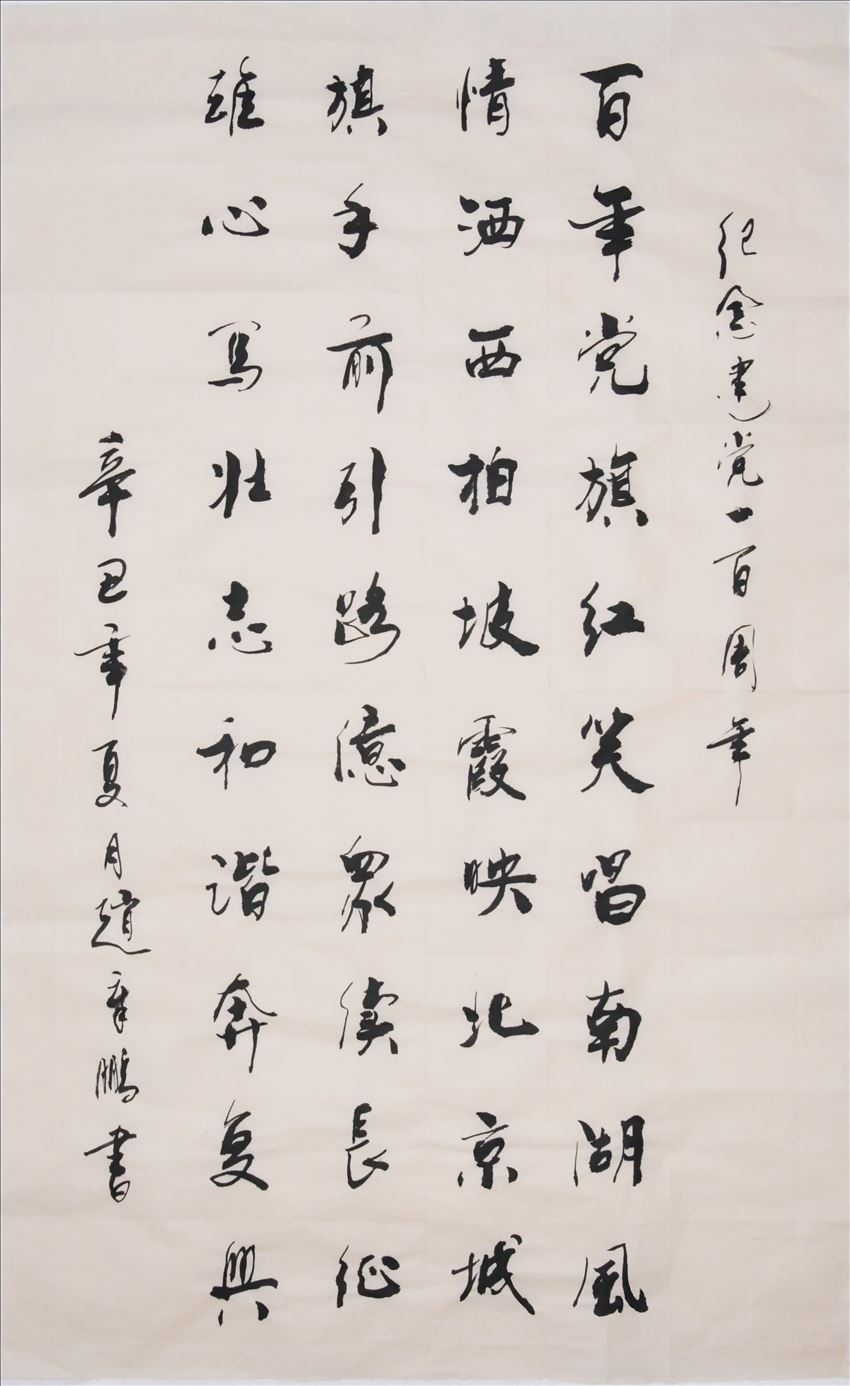 纪念建党一百周年
百年党旗红笑唱南湖風
情洒西柏坡霞映北京城
旗手前引路億眾续長征
雄心写壮志和谐奔复興
辛丑年夏月趙章鵬書